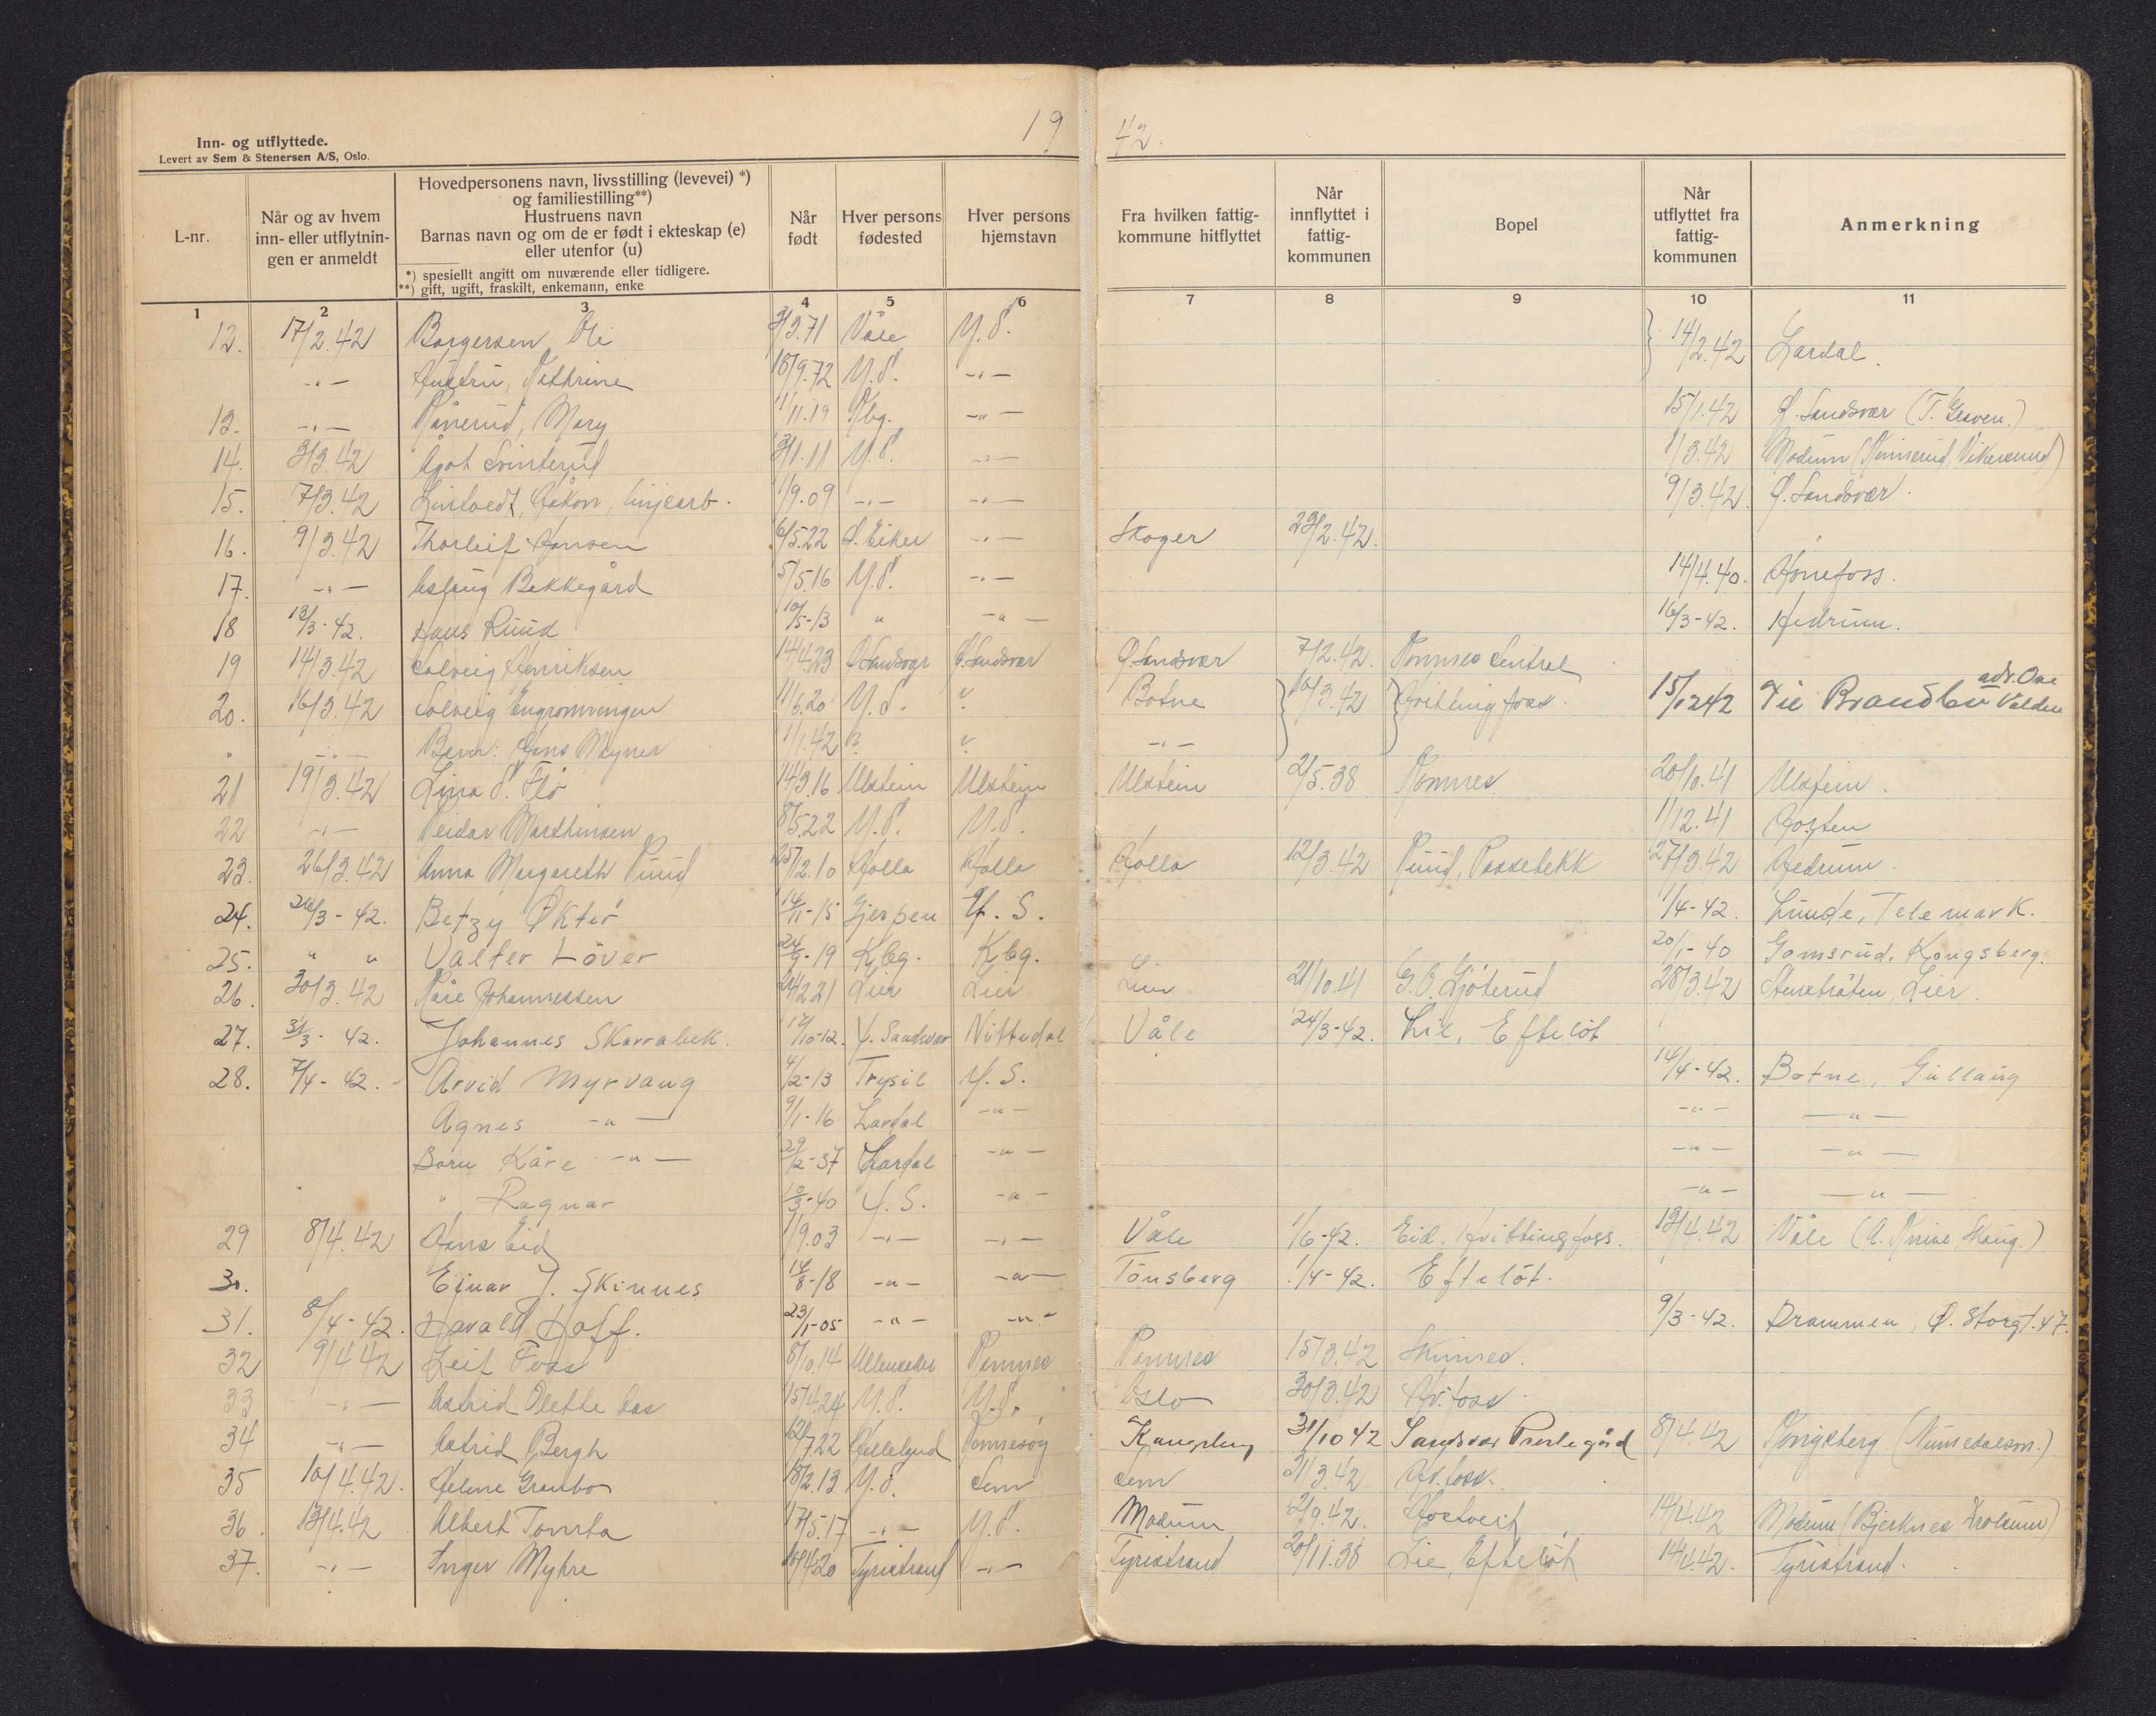 19 42.
Inn- og utflyttede.
Levert av Sem & Stenersen A/S, Oslo.
L-nr.
Når og av hvem inn- eller utflytnin-gen er anmeldt
Hovedpersonens navn, livsstilling (levevei) *)
og familiestilling**)
Hustruens navn
Barnas navn og om de er født i ekteskap (e)
eller utenfor (u)
*) spesiellt angitt om nuværende eller tidligere.
**) gift, ugift, fraskilt, enkemann, enke
Når født
Hver persons fødested
Hver persons hjemstavn
Fra hvilken fattig-kommune hitflyttet
Når innflyttet i fattig-kommunen
Bopel
Når utflyttet fra fattig-kommunen
Anmerkning
1 2 3 4 5 6 7 8 9 10 11
12. 17/2.42 Borgersen, Oli 3/3.71 Våle Y.S. 14/2.42 Lardal.
-"- Hustru, Kathrine 18/9.72 Y.S. -"-
13. -"- Rånerud, Mary 1/11.19 Kbg. -"- 15/1.42 Ø. Sandsvær (T. Graven.)
14. 3/3.42 Ågot Svinterud 3/1.11 Y.S. -"- 1/3.42 Modum (Vikersund)
15. 7/3.42 Linjearb. 1/9.09 -"- -"- 9/3.42 Ø. Sandsvær.
16. 9/3.42 Thorleif Hansen 6/5.22 Ø. Eiker -"- Skoger 23/2.42.
17. -"- Aslaug Bekkegård 5/5.16 Y.S. -"- 14/4.40. Hønefoss.
18 13/3-42. Hans Ruud 10/5-13 " -"- 16/3-42. Hedrum.
19 14/3.42 Solveig Henriksen 14/4.23 Ø. Sandsvær Ø. Sandsvær Ø. Sandsvær 7/2.42. Komnes Sentral
20. 16/3.42 Solveig Engromvingen 11/6.20 Y.S. ? Botne 10/3.42 Hvittingfoss. 15/12 42 Lie Brandbu adv. Ove
" -"- Barn: Hans Magner 1/1.42 ? ? -"-
21 19/3.42 Lina S. Flö 14/3.16 Ulstein Ulstein Ulstein 2/5.38 Komnes 20/10.41 Ulstein.
22 -"- Reidar Marthinsen 8/5.22 Y.S. Y.S. 1/12.41 Horten
23. 26/3.42 Anna Margareth Ruud 25/12.10 Holla Holla Holla 12/3.42 Ruud, Passebekk 27/3.42 Hedrum.
24. 26/3-42. Betzy Økter 14/11-15 Gjerpen Y.S. 1/4-42. Lunde, Telemark.
25. " " Valter Löver 24/9-19 Kbg. Kbg. 20/1-40 Gomsrud, Kongsberg.
26. 30/3.42 Kåre Johannessen 24/2.21 Lier Lier Lier 21/10.41 G.O. Ljöterud 28/3.42 Lier.
27. 31/3-42. Johannes Skarrabek. 12/10-12. Y. Sandsvær Nittedal Våle 24/3-42. Lie, Efteløt
28. 7/4-42. Arvid Myrvang 4/2-13 Trysil Y.S. 14/4-42. Botne, Gullaug
Agnes -"- 9/1-16 Lardal -"- -"- -"-
Barn Kåre -"- 29/12-37 Lardal -"- -"- -"-
" Ragnar 10/3-40 Y.S. -"- -"- -"-
29 8/4.42 Hans Eid 1/9.03 -"- -"- Våle 1/6-42. Eid, Hvittingfoss. 13/4.42 Våle
30. Ejnar J. Skinnes 14/8-18 -"- -"- Tönsberg 1/4-42. Efteløt.
31. 8/4-42. Harald Hoff. 23/1-05 -"- -"- 9/3-42. Drammen, Ø. Storgt. 47.
32 9/4 42 Leif Foss 8/10.14 Ullensaker Ramnes Ramnes 15/3.42 Skinnes.
33 -"- Astrid Olette Aas 15/4.24 Y.S. Y.S. Oslo 30/3.42 Hv.foss.
34 -"- Astrid Bergh 12/7.22 31/10 42 Sandsvær Prestegård 8/4.42 Kongsberg (Numedalsvn.)
35 10/4.42. Helene Grenbo 18/2.13 Y.S. Sem Sem 31/3.42 Hv.foss.
36. 13/4.42 Albert Tomta 17/5.17 -"- Y.S. Modum 2/9.42. Hostveit 14/4.42 Modum (Bjerknes)
37. -"- Inger Myhre 10/4.20 Tyristrand -"- Tyristrand 20/11.38 Lie, Efteløt 14/4.42. Tyristrand.